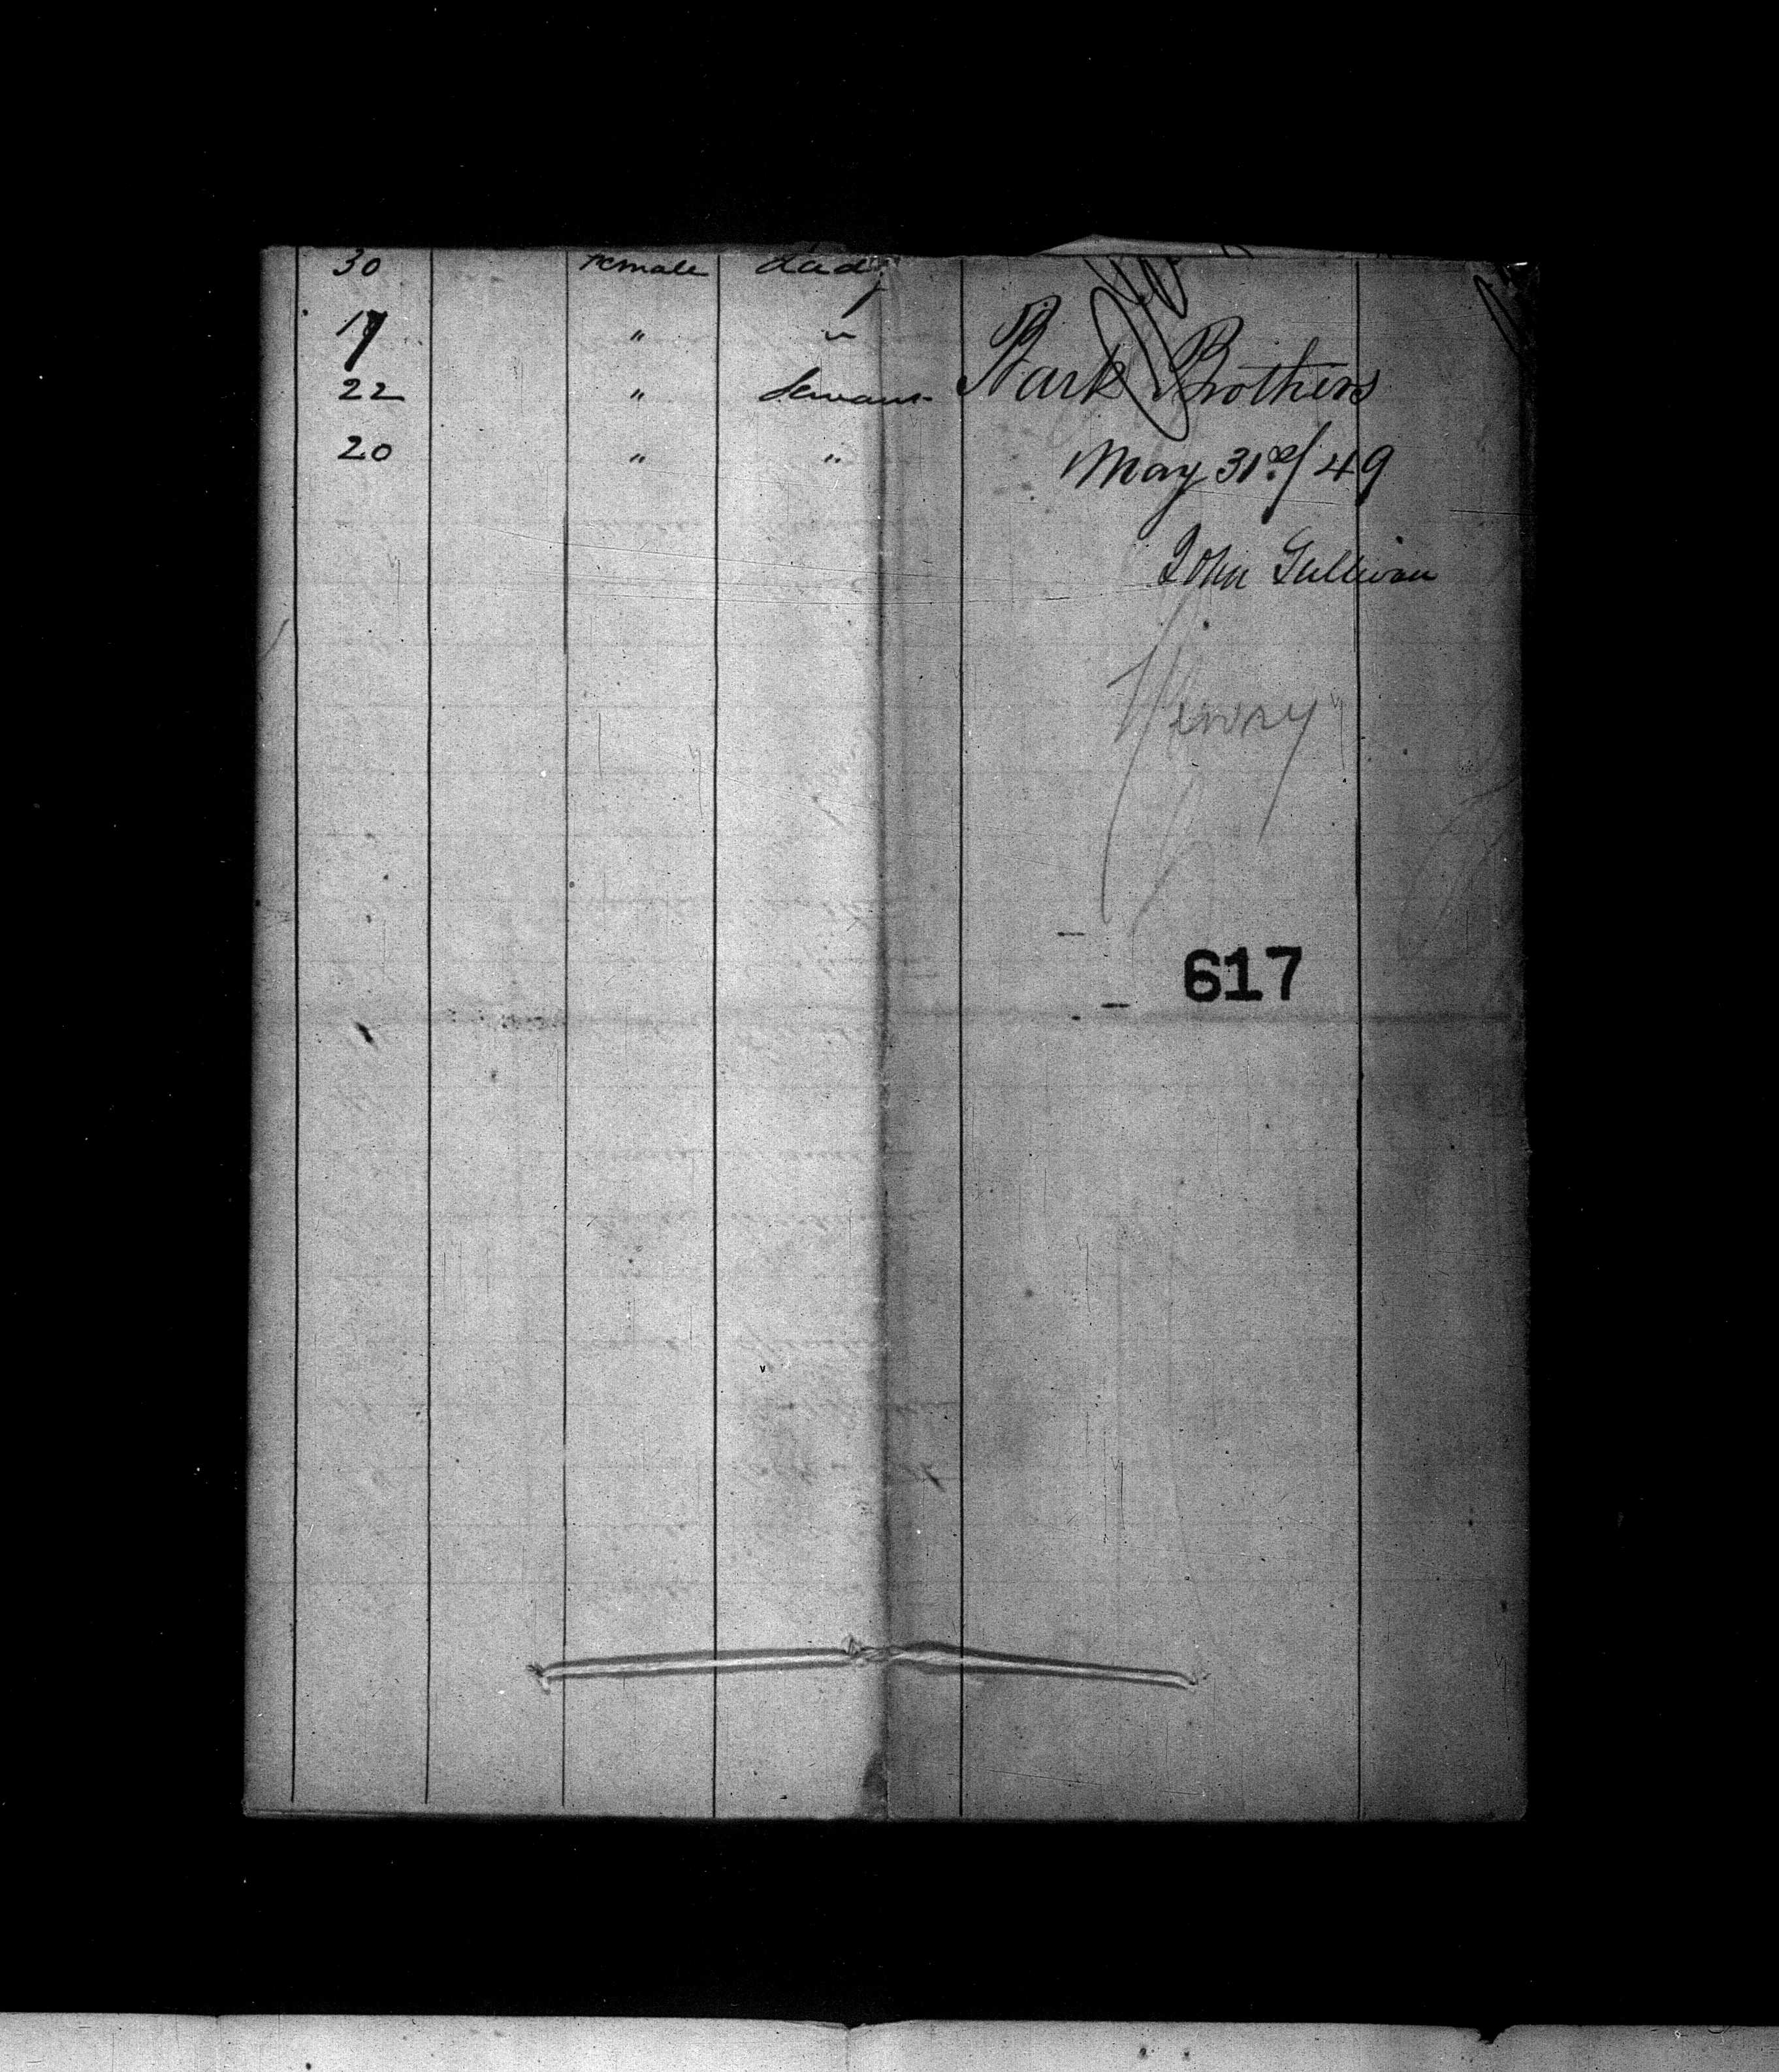 30 Female Lady
17 " "
22 " Servant
20 " "
Bark Brothers
May 31st/49
John Sullivan
Henry
617